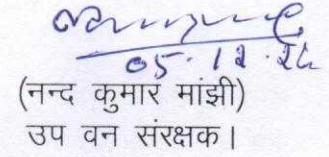 05.12.24
(नन्द कुमार मांझी)
उप वन संरक्षक।